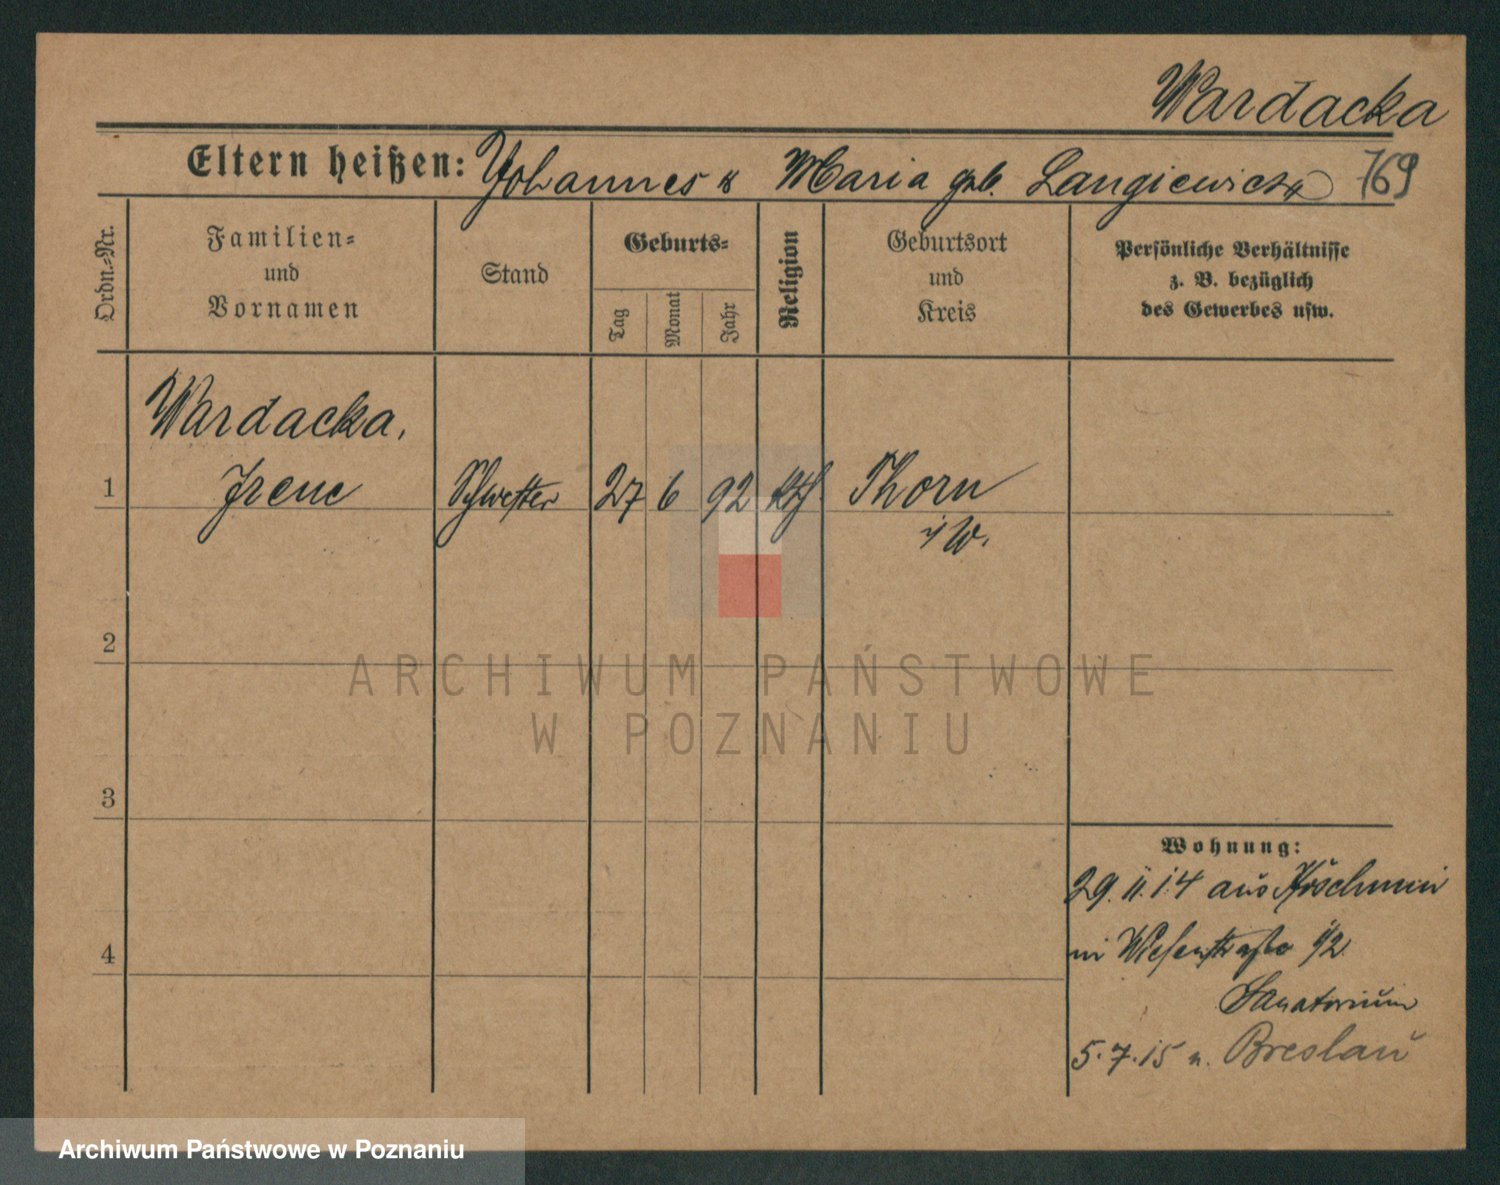 Wardacka
Eltern heißen: Johannes & Maria geb. Langiewicz 769
Ordn.-Nr.
Familien-
und
Vornamen
Stand
Geburts-
Tag
Monat
Jahr
Religion
Geburtsort
und
Kreis
Persönliche Verhältnisse
z. B. bezüglich
des Gewerbes usw.
Wardacka,
1 Irene Schwester 27 6 92 kth Thorn
W.
2
ARCHIWUM PAŃSTWOWE
W POZNANIU
3
Wohnung:
29.11.14 aus
4 in Wiesenstraße 1/2
Sanatorium
5.7.15 n. Breslau
Archiwum Państwowe w Poznaniu